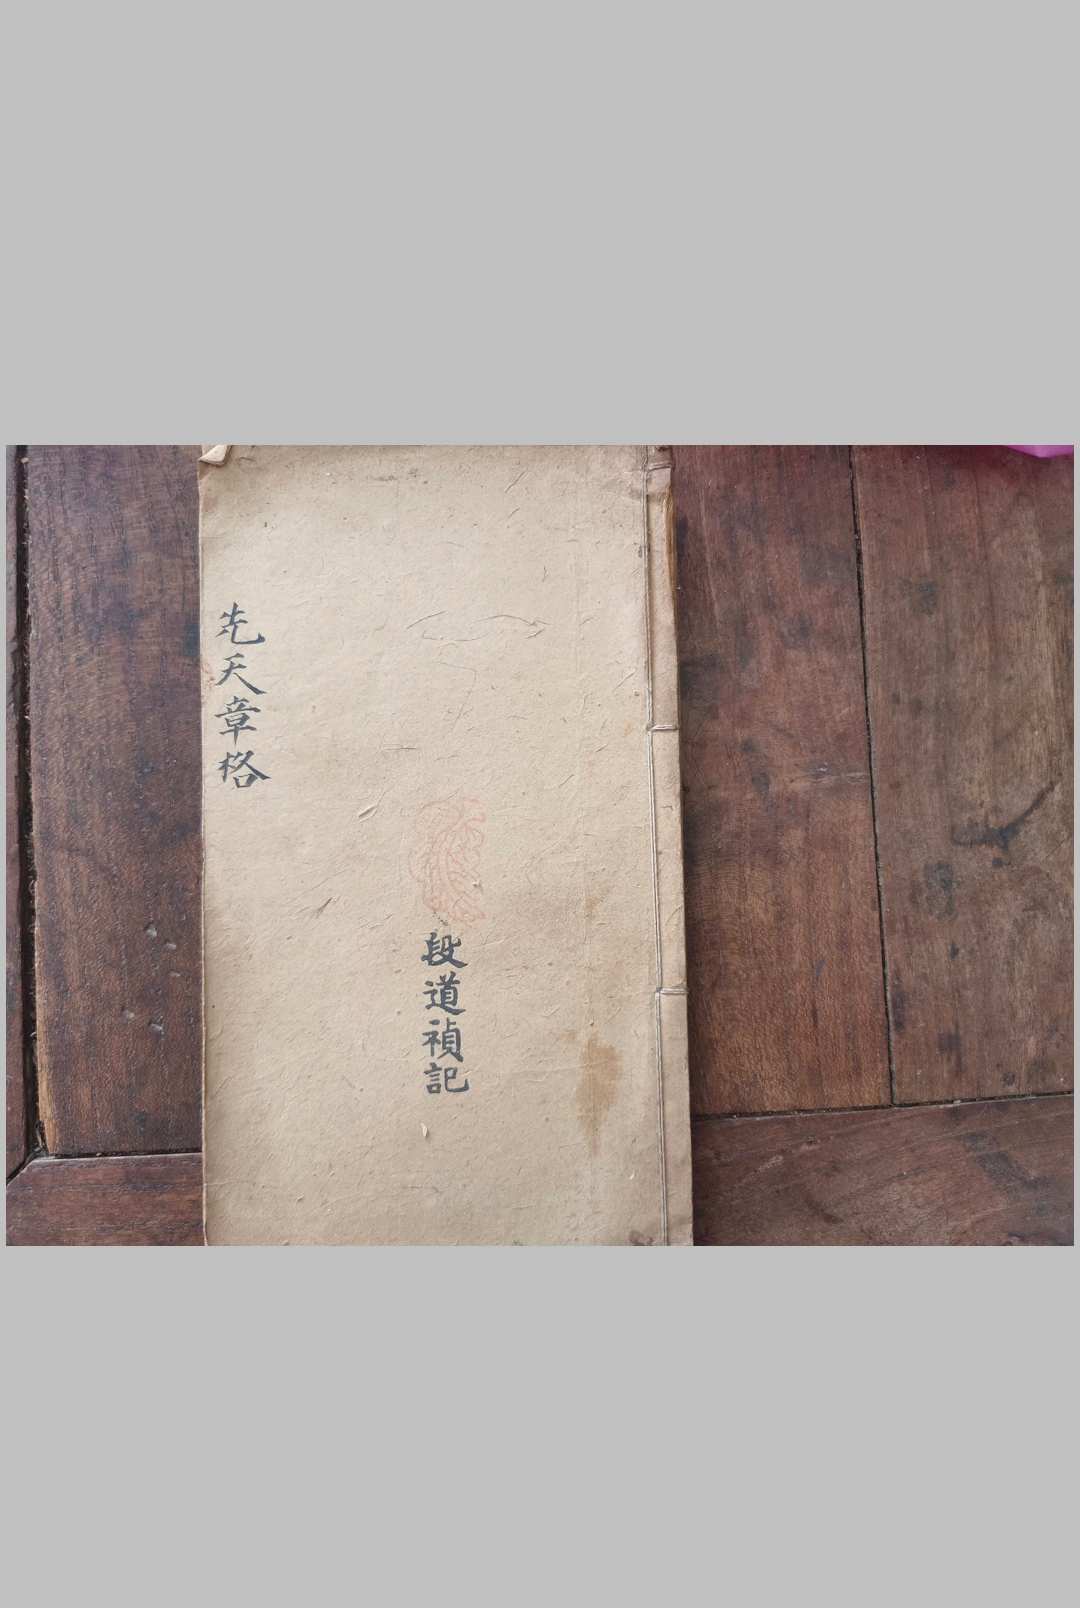 先天章格
段道禎記